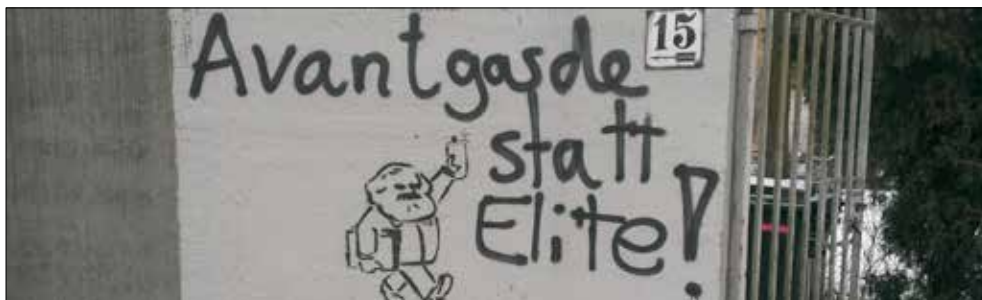 Avantgarde
15
statt
Elite!